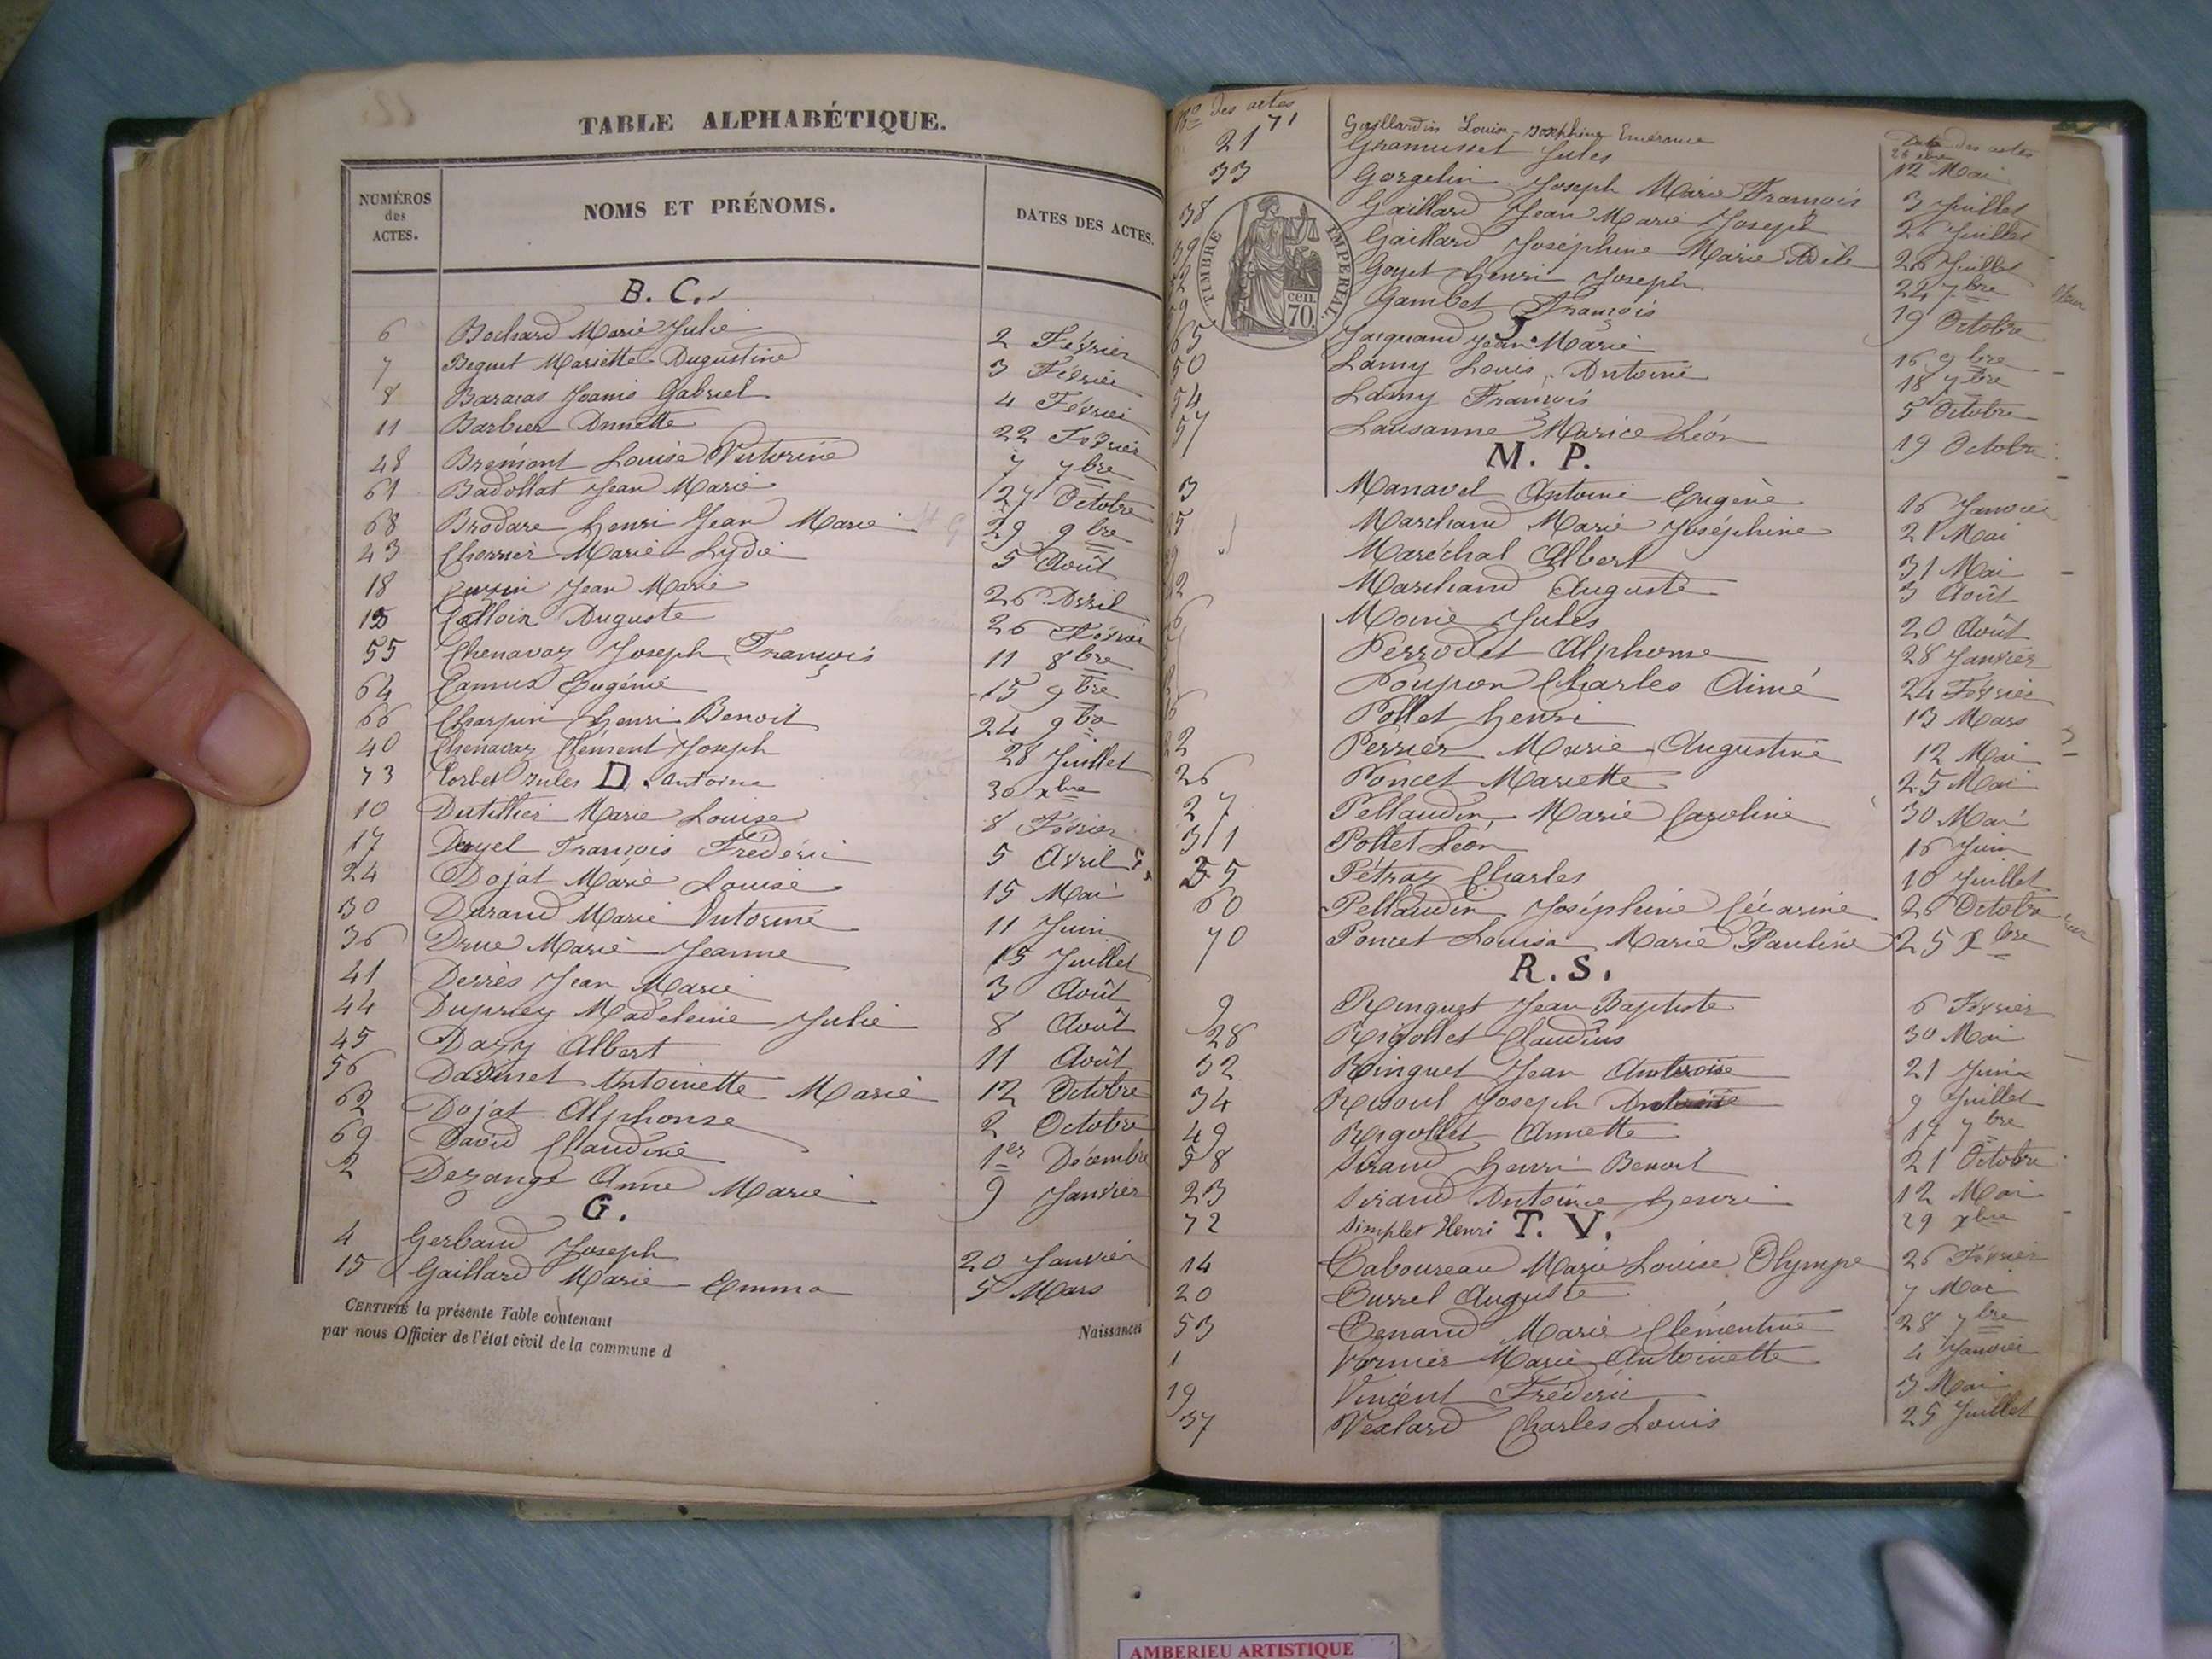 TABLE ALPHABÉTIQUE.
NUMÉROS des ACTES. NOMS ET PRÉNOMS. DATES DES ACTES.
B. C.
6 Bochard Marie Julie 2 Février
7 Beguet Mariette Augustine 3 Février
8 Baracas Joanis Gabriel 4 Février
11 Barbier Annette 22 Février
48 Brémont Louise Victorine 7 7bre
61 Badollat Jean Marie 27 Octobre
68 Brodare Henri Jean Marie 29 9bre
43 Charrier Marie Lydie 5 Août
18 Jean Marie 26 Avril
Auguste 26 Février
55 Chenavaz Joseph François 11 8bre
64 Camus Eugénie 15 9bre
66 Charpin Henri Benoit 24 9bre
40 Chenavaz Clément Joseph 28 Juillet
73 Corbet Jules Antoine 30 xbre
D.
10 Dutillier Marie Louise 8 Février
17 Dayel François Frédéric 5 Avril
24 Dojat Marie Louise 15 Mai
30 Durand Marie Victorine 11 Juin
36 Drue Marie Jeanne 15 Juillet
41 Derrès Jean Marie 3 Août
44 Dupriey Madeleine Julie 8 Août
45 Dazy Albert 11 Août
56 Antoinette Marie 12 Octobre
62 Dojat Alphonse 2 Octobre
69 David Claudine 1er Décembre
2 Dezange Anne Marie 9 Janvier
G.
4 Gerbaud Joseph 20 Janvier
15 Gaillard Marie Emma 5 Mars
CERTIFIÉ la présente Table contenant Naissances
par nous Officier de l'état civil de la commune d
No des actes Date des actes
71 Gaillardin Louise Joséphine Emérance
21 Gramusset Jules 12 Mai
33 Gorgelin Joseph Marie François 3 Juillet
38 Gaillard Jean Marie Joseph 26 Juillet
39 Gaillard Joséphine Marie Adèle 26 Juillet
52 Goyet Henri Joseph 22 7bre
59 Gambet François 19 Octobre
TIMBRE IMPERIAL
70 cen.
J
65 Jacquand Jean Marie 16 9bre
50 Lamy Louis Antoine 18 7bre
54 Lamy François 5 Octobre
57 Lausanne Marice Léon 19 Octobre
M. P.
3 Manavel Antoine Eugène 16 Janvier
25 Marchand Marie Joséphine 21 Mai
Maréchal Albert 31 Mai
42 Marchand Auguste 3 Août
Marie Jules 20 Août
Perrodet Alphonse 28 Janvier
Poupon Charles Aimé 24 Février
Pollet Henri 13 Mars
22 Perrier Marie Augustine 12 Mai
26 Poncet Mariette 25 Mai
27 Pellaudin Marie Caroline 30 Mai
31 Pollet Léon 16 Juin
35 Pétraz Charles 10 Juillet
60 Pellaudin Joséphine Césarine 26 Octobre
70 Poncet Louise Marie Pauline 25 xbre
R. S.
9 Ringuet Jean Baptiste 6 Février
28 Rigollet Claudius 30 Mai
32 Ringuet Jean Ambroise 21 Juin
34 Risoul Joseph Antoine 9 Juillet
49 Rigollet Annette 17 7bre
58 Sirand Henri Benoit 21 Octobre
23 Sirand Antoine Henri 12 Mai
72 Simplet Henri 29 xbre
T. V.
14 Taboureau Marie Louise Olympe 26 Février
20 Turrel Auguste 7 Mai
53 Tenand Marie Clémentine 28 7bre
1 Vernier Marie Antoinette 4 Janvier
19 Vincent Frédéric 3 Mai
37 Vexlard Charles Louis 25 Juillet
AMBERIEU ARTISTIQUE